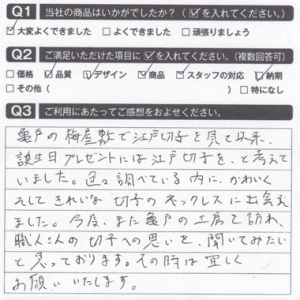 Q1 当社の商品はいかがでしたか？（☑を入れてください。）
☑大変よくできました □よくできました □頑張りましょう
Q2 ご満足いただけた項目に☑を入れてください。（複数回答可）
□価格 ☑品質 ☑デザイン ☑商品 ☑スタッフの対応 ☑納期
□その他（ ） □特になし
Q3 ご利用にあたってご感想をおよせください。
亀戸の梅屋敷で江戸切子を見て以来、
誕生日プレゼントには江戸切子を、と考えて
いました。色々調べている内に、かわいく
そしてきれいな切子のネックレスに出会え
ました。今度、また亀戸の工房で訪れ、
職人さんの切子への思いを、聞いてみたい
と思っております。その時は宜しく
お願いいたします。